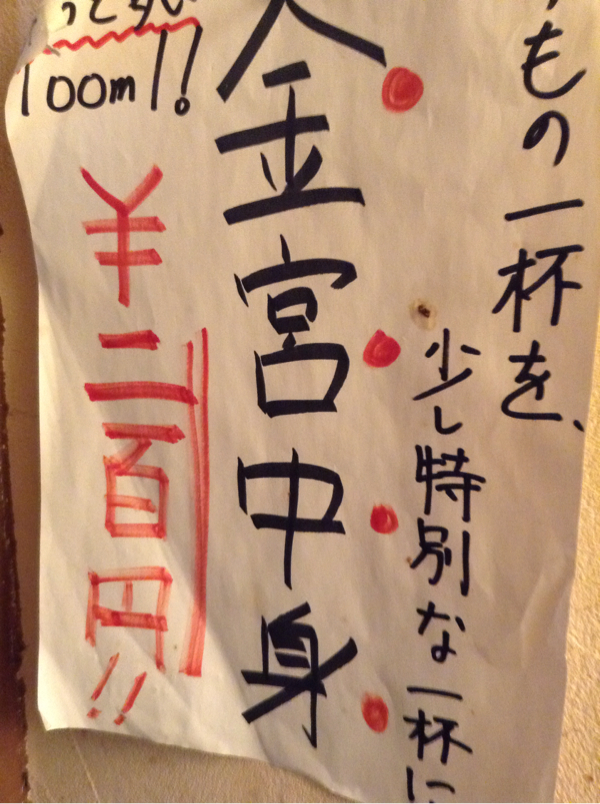 もの一杯を、
少し特別な一杯に
金宮中身
100ml!
¥二百円!!